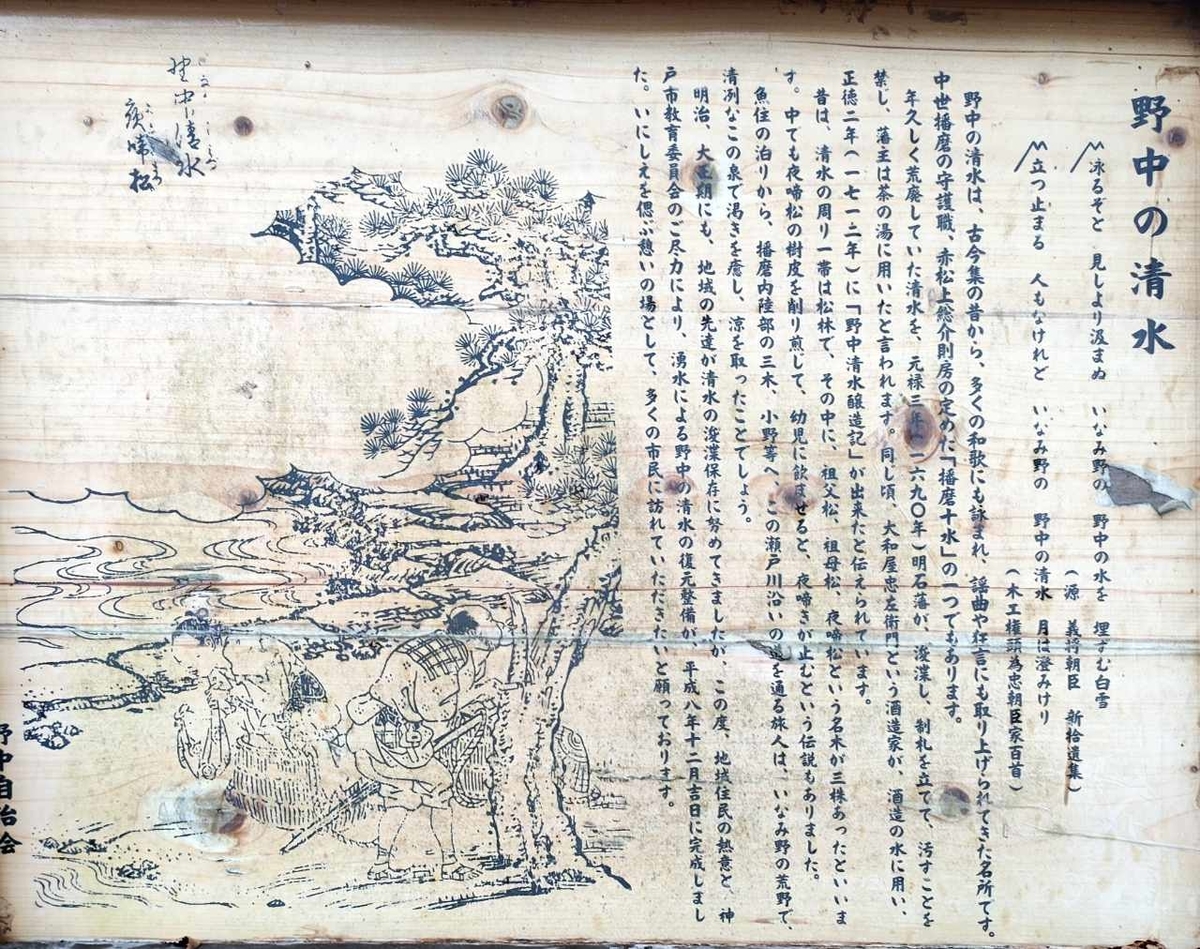 野中の清水
〽泳るぞと 見しより汲まぬ いなみ野の 野中の水を 埋ずむ白雪
(源 義将朝臣 新拾遺集)
〽立つ止まる 人もなけれど いなみ野の 野中の清水 月は澄みけり
(木工権頭為忠朝臣家百首)
野中の清水は、古今集の昔から、多くの和歌にも詠まれ、謡曲や狂言にも取り上げられてきた名所です。
中世播磨の守護職、赤松上総介則房の定めた「播磨十水」の一つでもあります。
年久しく荒廃していた清水を、元禄三年(一六九〇年)明石藩が、浚渫し、制札を立てて、汚すことを
禁し、藩主は茶の湯に用いたと言われます。同じ頃、大和屋忠左衛門という酒造家が、酒造の水に用い、
正徳二年(一七一二年)に「野中清水醸造記」が出来たと伝えられています。
昔は、清水の周り一帯は松林で、その中に、祖父松、祖母松、夜啼松という名木が三株あったといいま
す。中でも夜啼松の樹皮を削り煎して、幼児に飲ませると、夜啼きが止むという伝説もありました。
魚住の泊りから、播磨内陸部の三木、小野等へ、この瀬戸川沿いの道を通る旅人は、いなみ野の荒野で、
清冽なこの泉で渇きを癒し、涼を取ったことでしょう。
明治、大正期にも、地域の先達が清水の浚渫保存に努めてきましたが、この度、地域住民の熱意と、神
戸市教育委員会のご尽力により、湧水による野中の清水の復元整備が、平成八年十二月吉日に完成しまし
た。いにしえを偲ぶ憩いの場として、多くの市民に訪れていただきたいと願っております。
野中清水
夜啼松
野中自治会